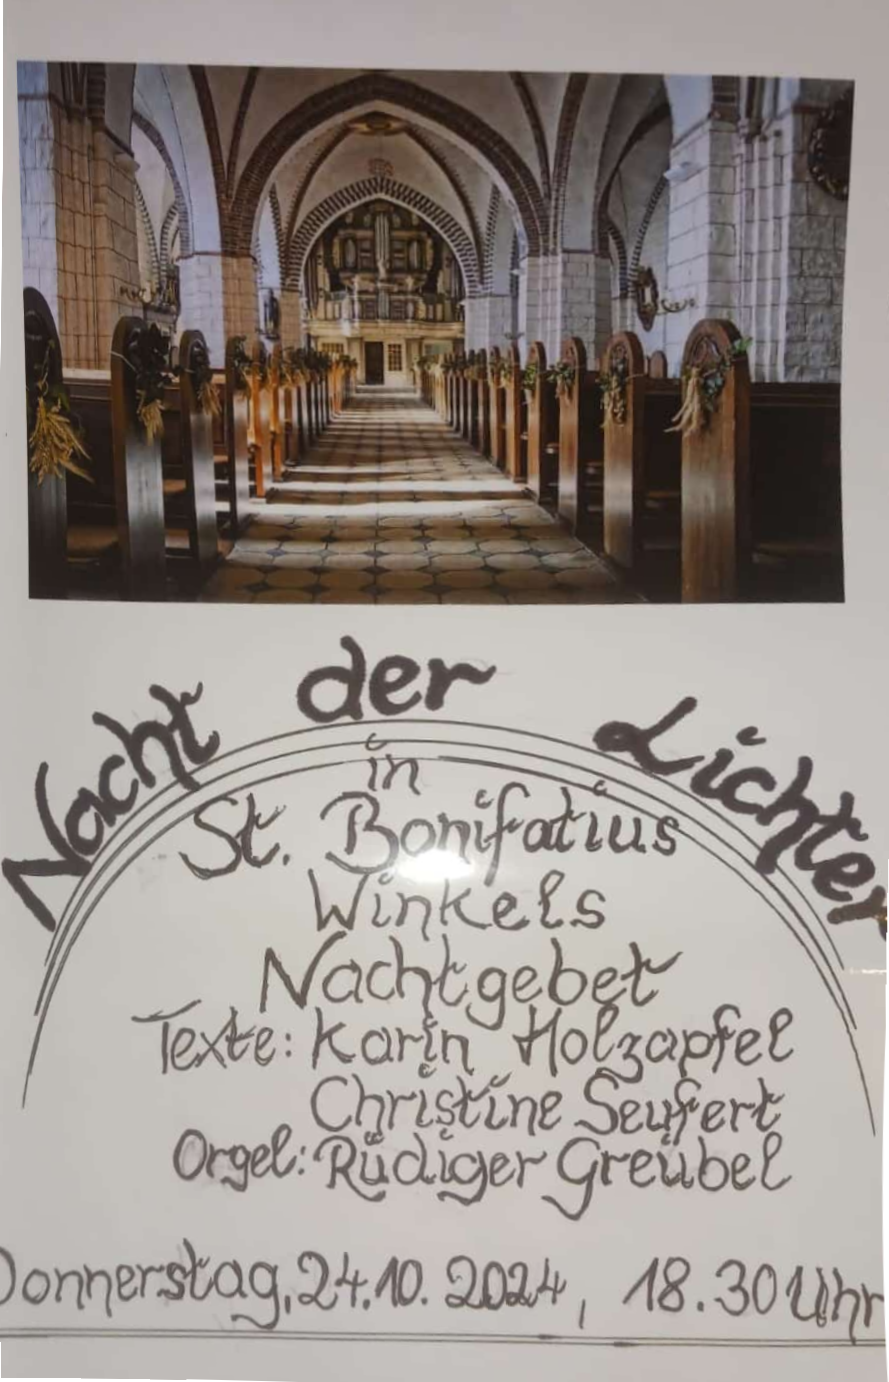 Nacht der Lichter
in
St. Bonifatius
Winkels
Nachtgebet
Texte: Karin Holzapfel
Christine Seufert
Orgel: Rüdiger Greubel
Donnerstag, 24.10. 2024, 18.30 Uhr